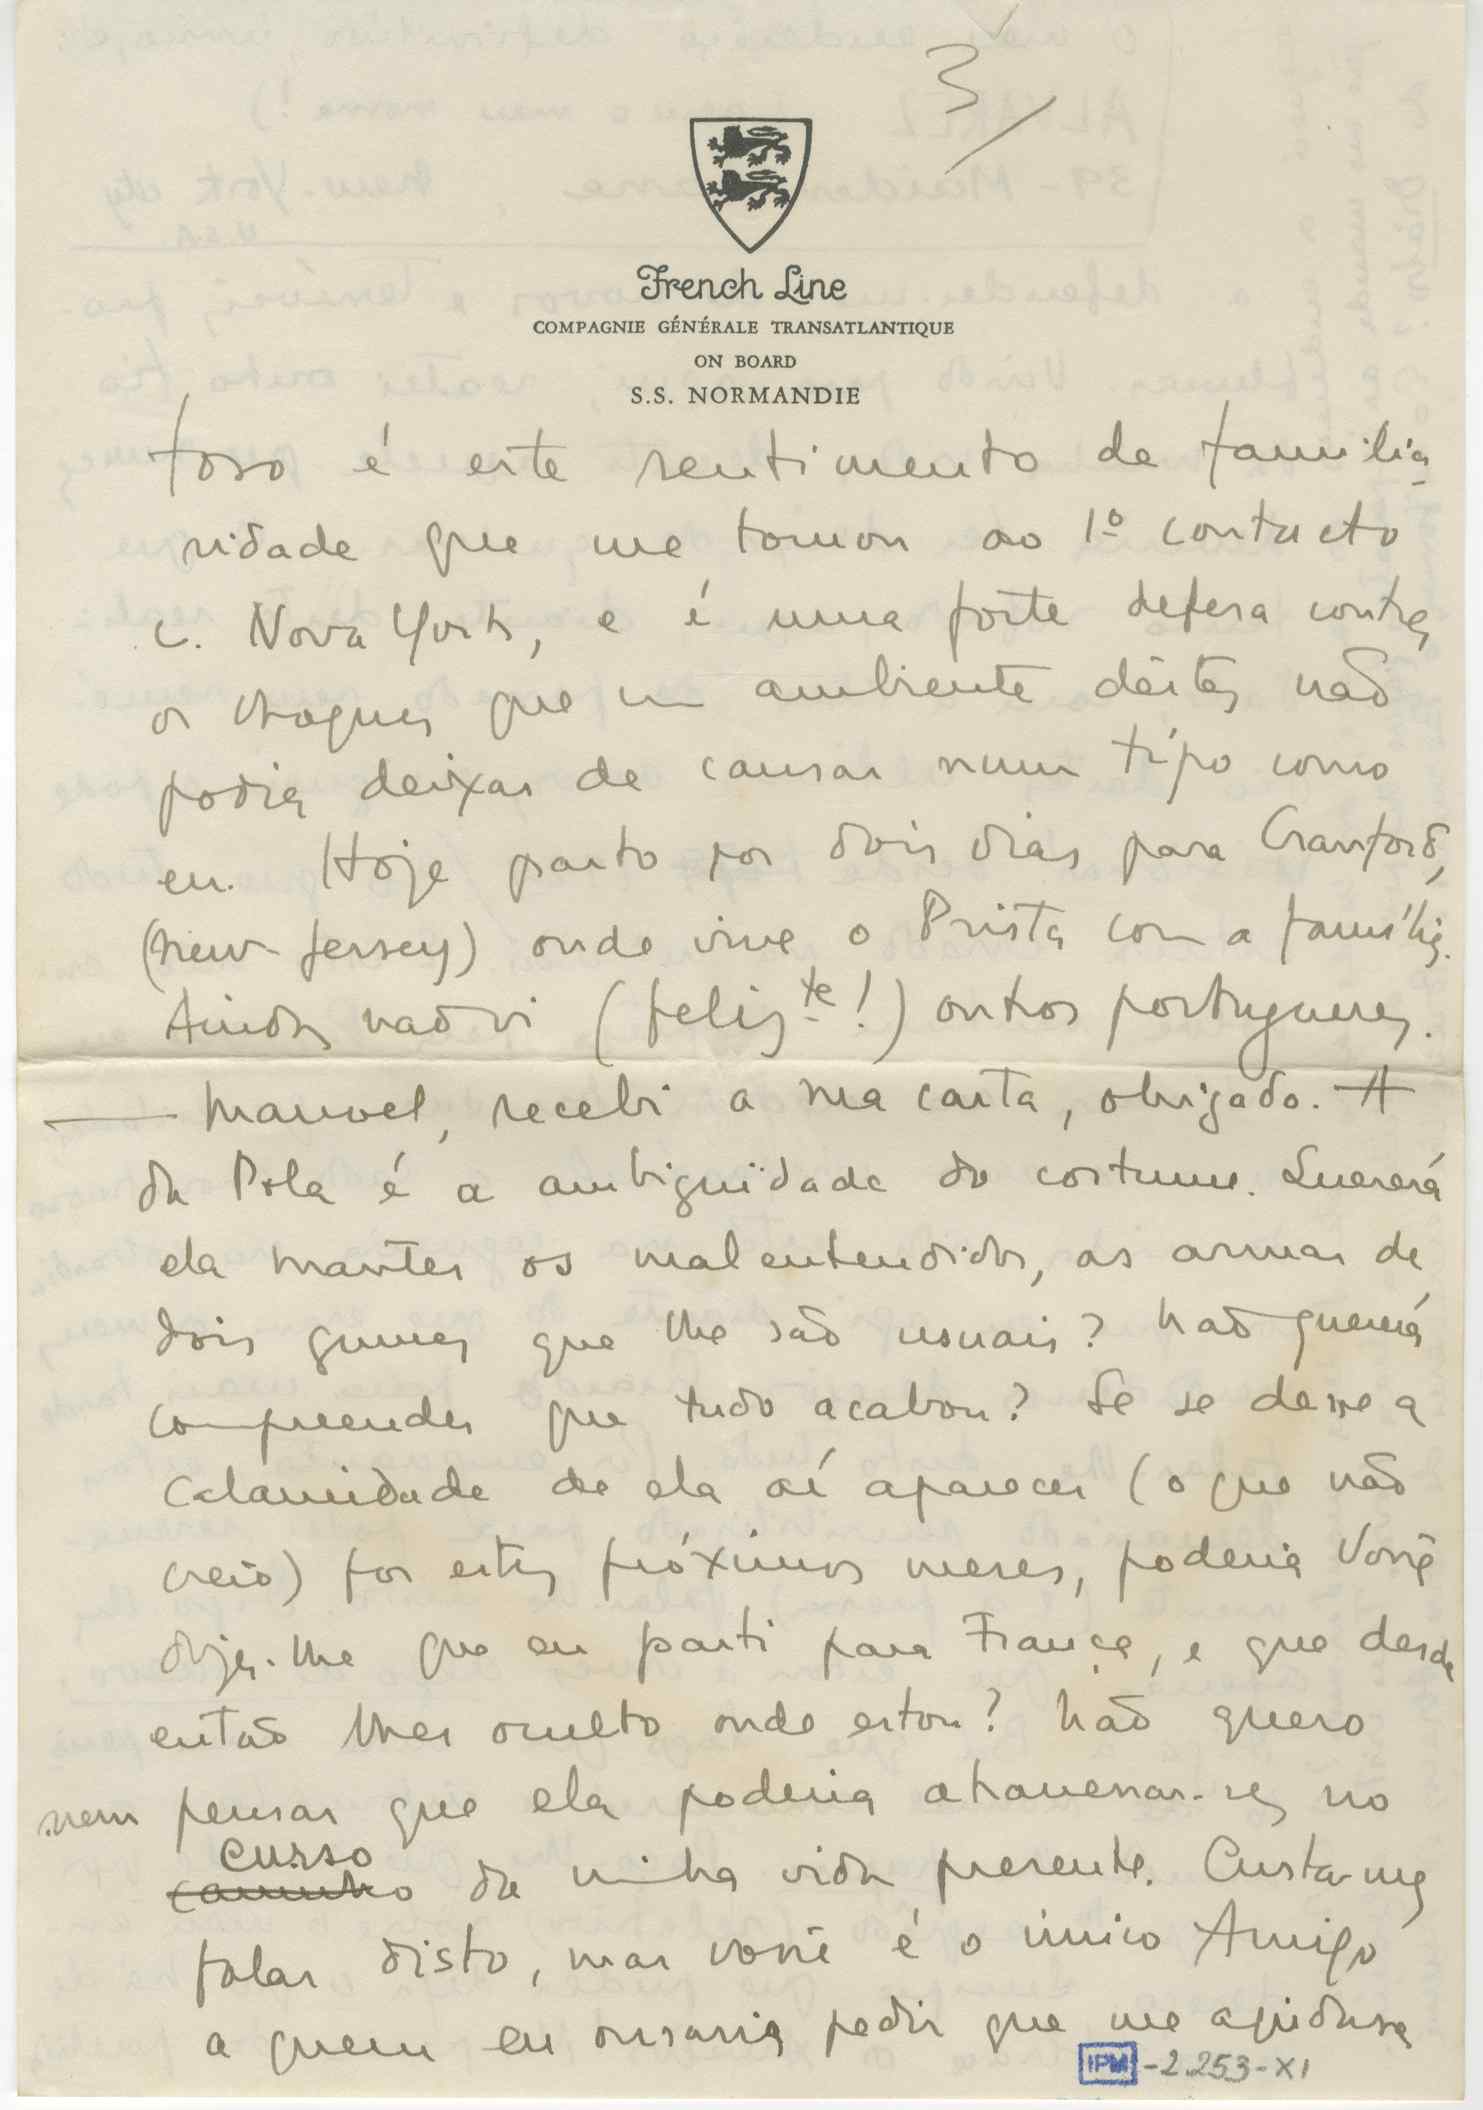 3/
French Line
COMPAGNIE GÉNÉRALE TRANSATLANTIQUE
ON BOARD
S.S. NORMANDIE
toso é este sentimento de familia-
ridade que me tomou ao 1º contacto
c. Nova York, e é uma forte defesa contra
os choques que um ambiente dêstes não
podia deixar de causar num tipo como
eu. Hoje parto por dois dias para Cranford,
(New-Jersey) onde vive o Prista com a família.
Ainda não vi (feliz.te!) outros portugueses.
— Manuel, recebi a sua carta, obrigado. A
da Pola é a ambigüidade do costume. Quererá
ela manter os malentendidos, as armas de
dois gumes que lhe são usuais? Não quererá
compreender que tudo acabou? Se se desse a
calamidade de ela aí aparecer (o que não
creio) por estes próximos meses, poderia Você
dizer-lhe que eu parti para França, e que desde
então lhes oculto onde estou? Não quero
nem pensar que ela poderia atravessar-se no
curso
caminho da minha vida presente. Custa-me
falar disto, mas você é o único Amigo
a quem eu ousaria pedir que me ajudasse
IPM -2.253-XI